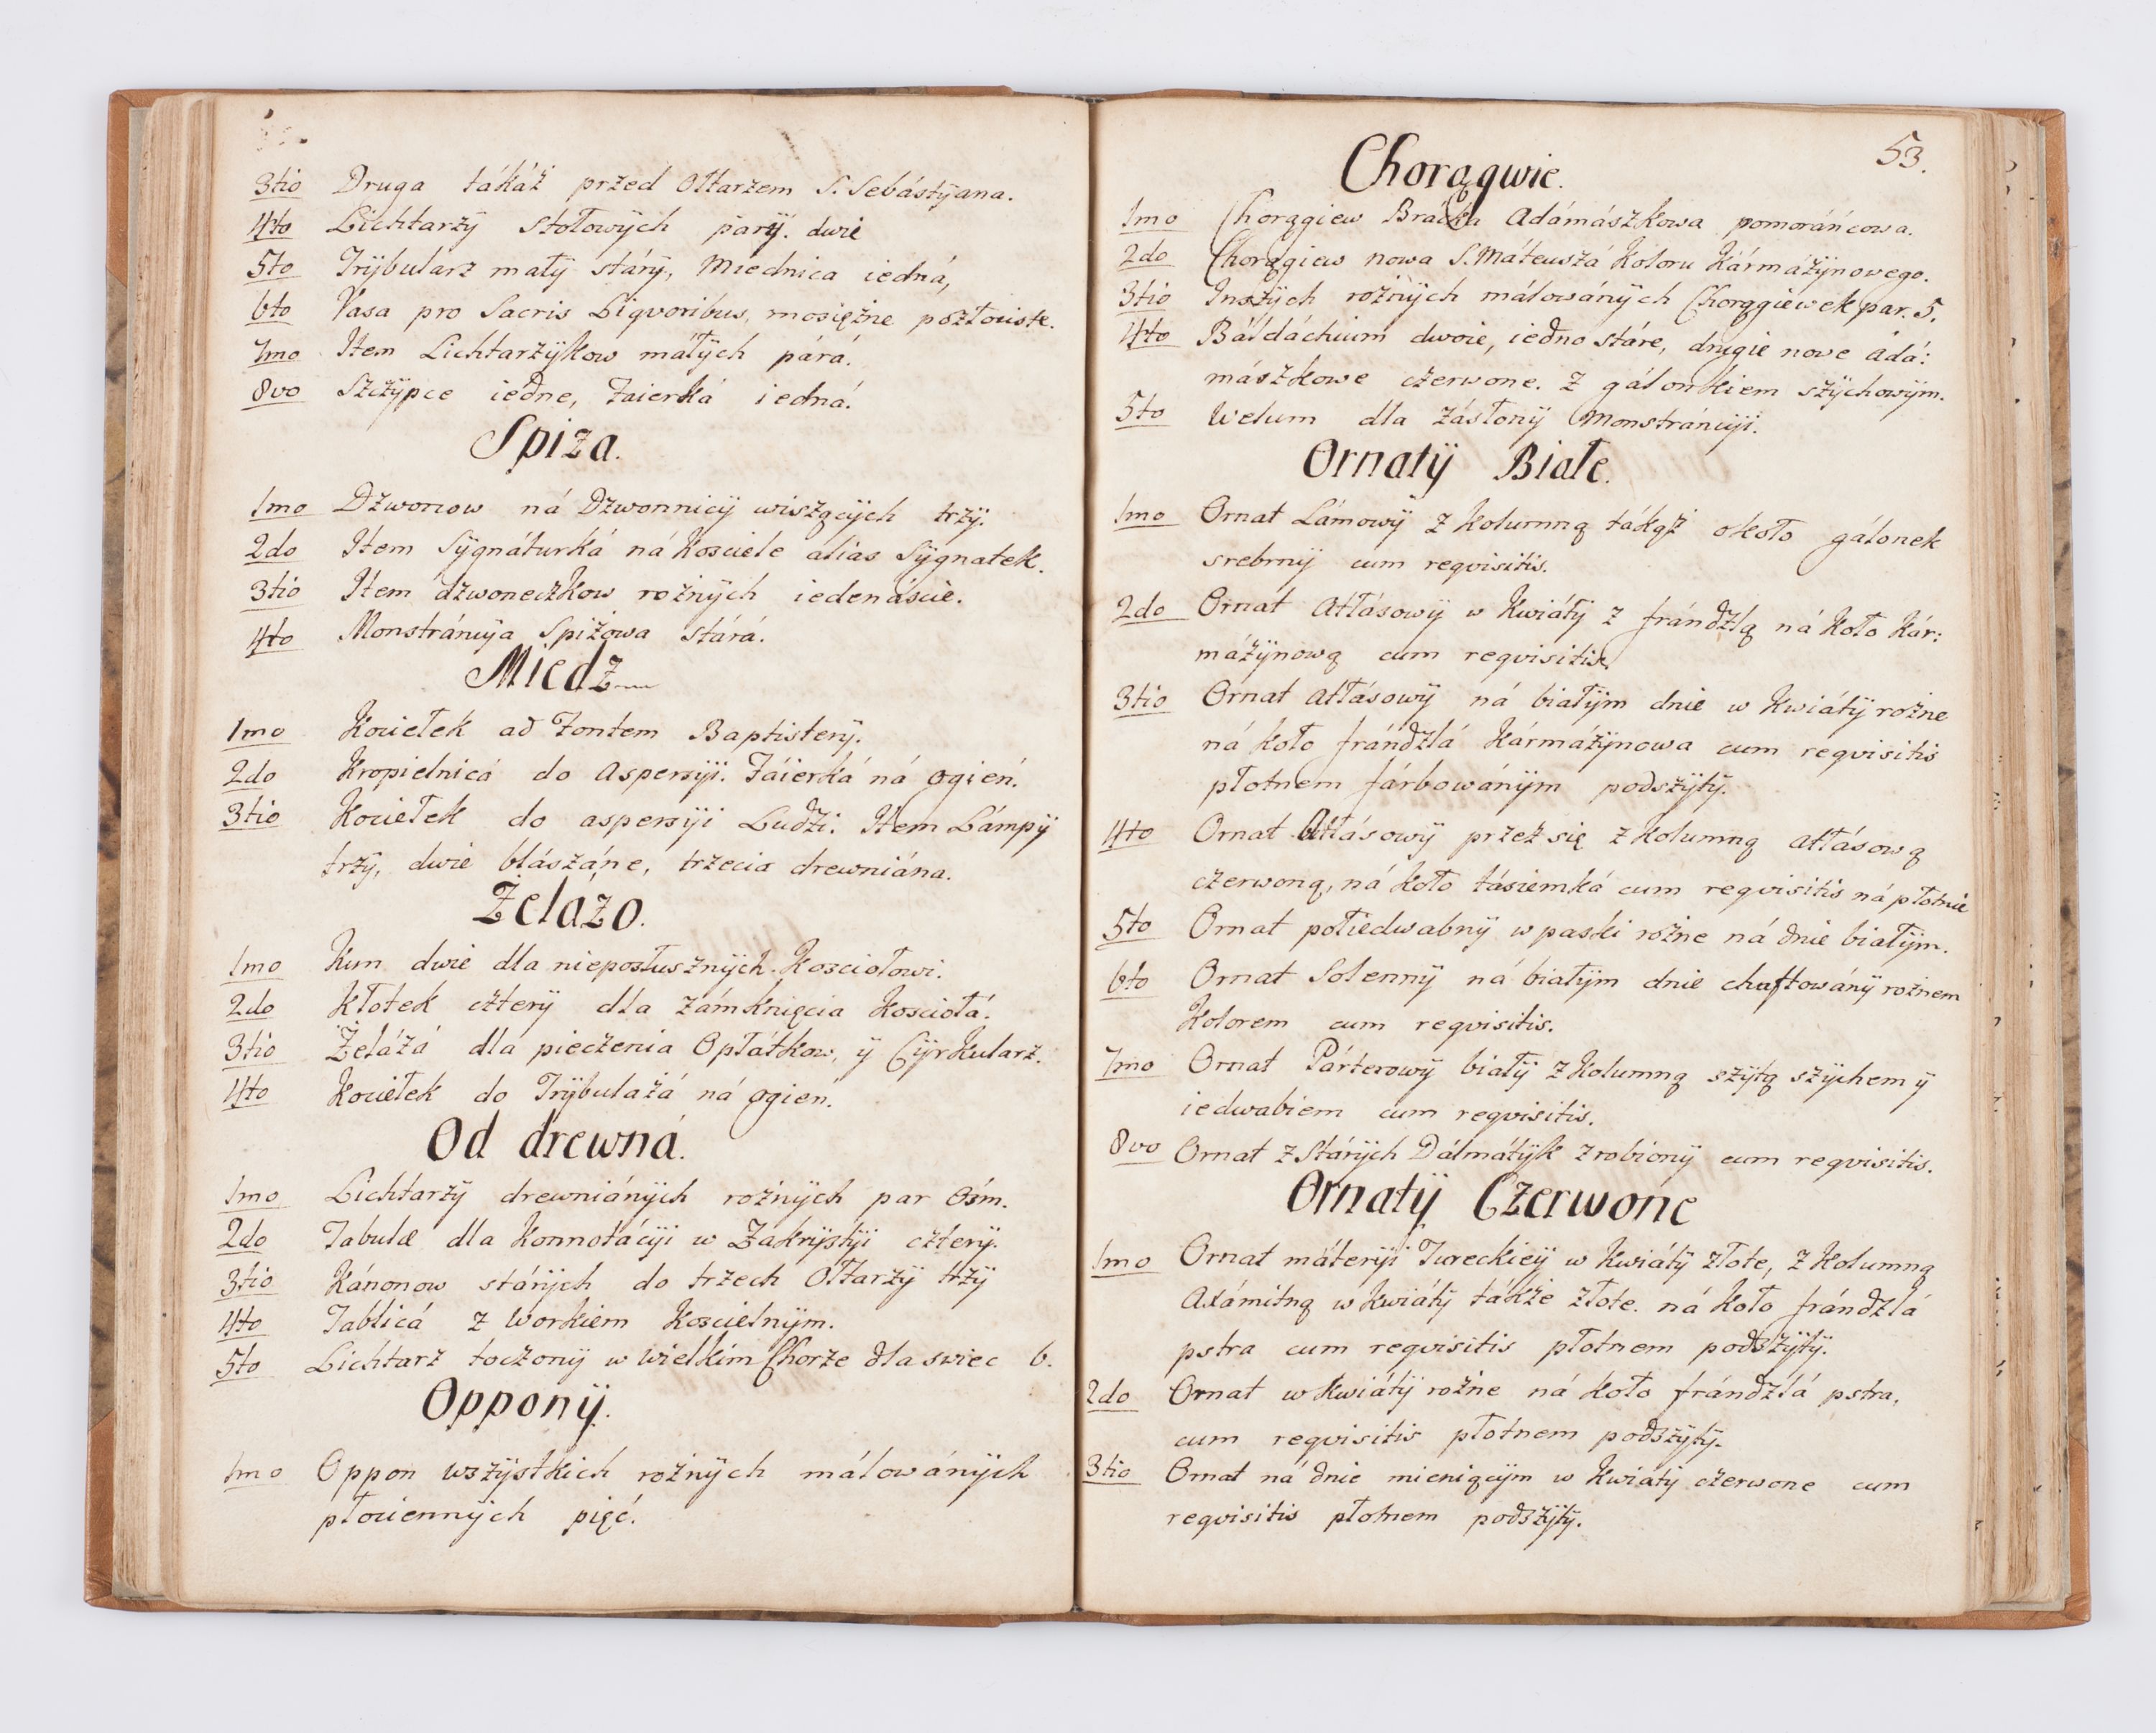 3tio Druga tákáż przed Ołtarzem S. Sebástÿana.
4to Lichtarzÿ Stołowÿch parÿ. dwie
5to Trÿbularz małÿ stárÿ, Miednica iedná,
6to Vasa pro Sacris Liqvoribus, mosiężne pozłociste.
7mo Item Lichtarzÿkow máłÿch párá.
8vo Szczÿpce iedne, Faierká iedná.
Spiza.
1mo Dzwonow ná Dzwonnicÿ wiszącÿch trzÿ.
2do Item Sÿgnáturká ná Kosciele alias Sÿgnatek.
3tio Item dzwoneczkow rożnÿch iedenáscie.
4to Monstráncÿa Spiżowa stárá.
Miedz
1mo Kociełek ad Fontem Baptisterÿ.
2do Kropielnicá do Aspersÿi. Fáierká ná ogień.
3tio Kociełek do aspersÿi Ludźi. Item Lámpÿ
trzÿ, dwie blászáne, trzecia drewniána.
Żelázo.
1mo Kun dwie dla nieposłusznÿch Kosciołowi.
2do Kłotek czterÿ dla zámknięcia Kosciołá.
3tio Żelázá dla pieczenia Opłátkow, ÿ Cÿrkularz.
4to Kociełek do Trÿbulażá ná ogień.
Od drewná.
1mo Lichtarzÿ drewniánÿch rożnÿch par Osm.
2do Tabulæ dla Konnotácÿi w Zakrÿstÿi czterÿ.
3tio Kánonow stárÿch do trzech Ołtarzÿ trzÿ
4to Tablicá z Workiem Koscielnÿm.
5to Lichtarz toczonÿ w wielkim Chorze dla swiec 6.
Opponÿ.
1mo Oppon wszÿstkich rożnÿch málowánÿch
płociennÿch pięć.
53.
Chorągwie.
1mo Chorągiew Brácka Adámászkowa pomoráńcowa.
2do Chorągiew nowa S. Máteuszá Koloru Kármázÿnowego.
3tio Inszÿch rożnÿch málowánÿch Chorągiewek par. 5.
4to Báldáchium dwoie, iedno stáre, drugie nowe ádá:
mászkowe czerwone. z gálonkiem szÿchowÿm.
5to Welum dla zásłonÿ Monstráncÿi.
Ornatÿ Białe.
1mo Ornat Lámowÿ z kolumną tákąż około gálonek
srebrnÿ cum reqvisitis.
2do Ornat Atłásowÿ w Kwiátÿ z frándzlą ná koło Kár:
mázÿnową cum reqvisitis
3tio Ornat atłásowÿ ná białÿm dnie w Kwiátÿ rożne
ná koło frándzlá Kármázÿnowa cum reqvisitis
płotnem fárbowánÿm podszÿtÿ.
4to Ornat Atłásowÿ przez się z kolumną atłásową
czerwoną, ná koło tásiemká cum reqvisitis ná płotnie
5to Ornat połiedwabnÿ w paski rożne ná dnie białÿm.
6to Ornat Solennÿ ná białÿm dnie chaftowánÿ rożnem
Kolorem cum reqvisitis.
7mo Ornat Párterowÿ białÿ z kolumną szÿtą szÿchem ÿ
iedwabiem cum reqvisitis.
8vo Ornat z Stárÿch Dálmátÿk zrobionÿ cum reqvisitis.
Ornatÿ Czerwone
1mo Ornat máterÿi Tureckieÿ w Kwiátÿ złote, z Kolumną
Axámitną w Kwiátÿ tákże złote. ná koło frándzlá
pstra cum reqvisitis płotnem podszÿtÿ.
2do Ornat w Kwiátÿ rożne ná koło frándzlá pstra,
cum reqvisitis płotnem podszÿtÿ.
3tio Ornat ná dnie mieniącÿm w Kwiatÿ czerwone cum
reqvisitis płotnem podszÿtÿ.